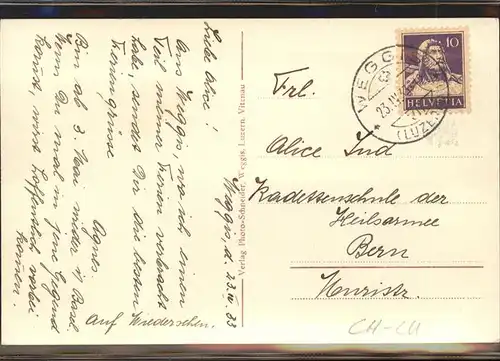 Weggis, d. 23. IV. 33
Liebe Alice!
Aus Weggis, wo ich einen
Teil meiner Ferien verbracht
habe, sendet Dir die besten
Feriengrüsse
Agnes.
Bin ab 3. Mai wieder in Basel.
Wenn Du mal in jene Gegend
kommst, wirst hoffentlich vorbei-
kommen.
Auf Wiedersehen.
Verlag Photo-Schneider, Weggis, Luzern, Vitznau
Frl.
Alice Jud
Kadettenschule der
Heilsarmee
Bern
10
HELVETIA
WEGGIS
23.IV.
(LUZERN)
CH-LU